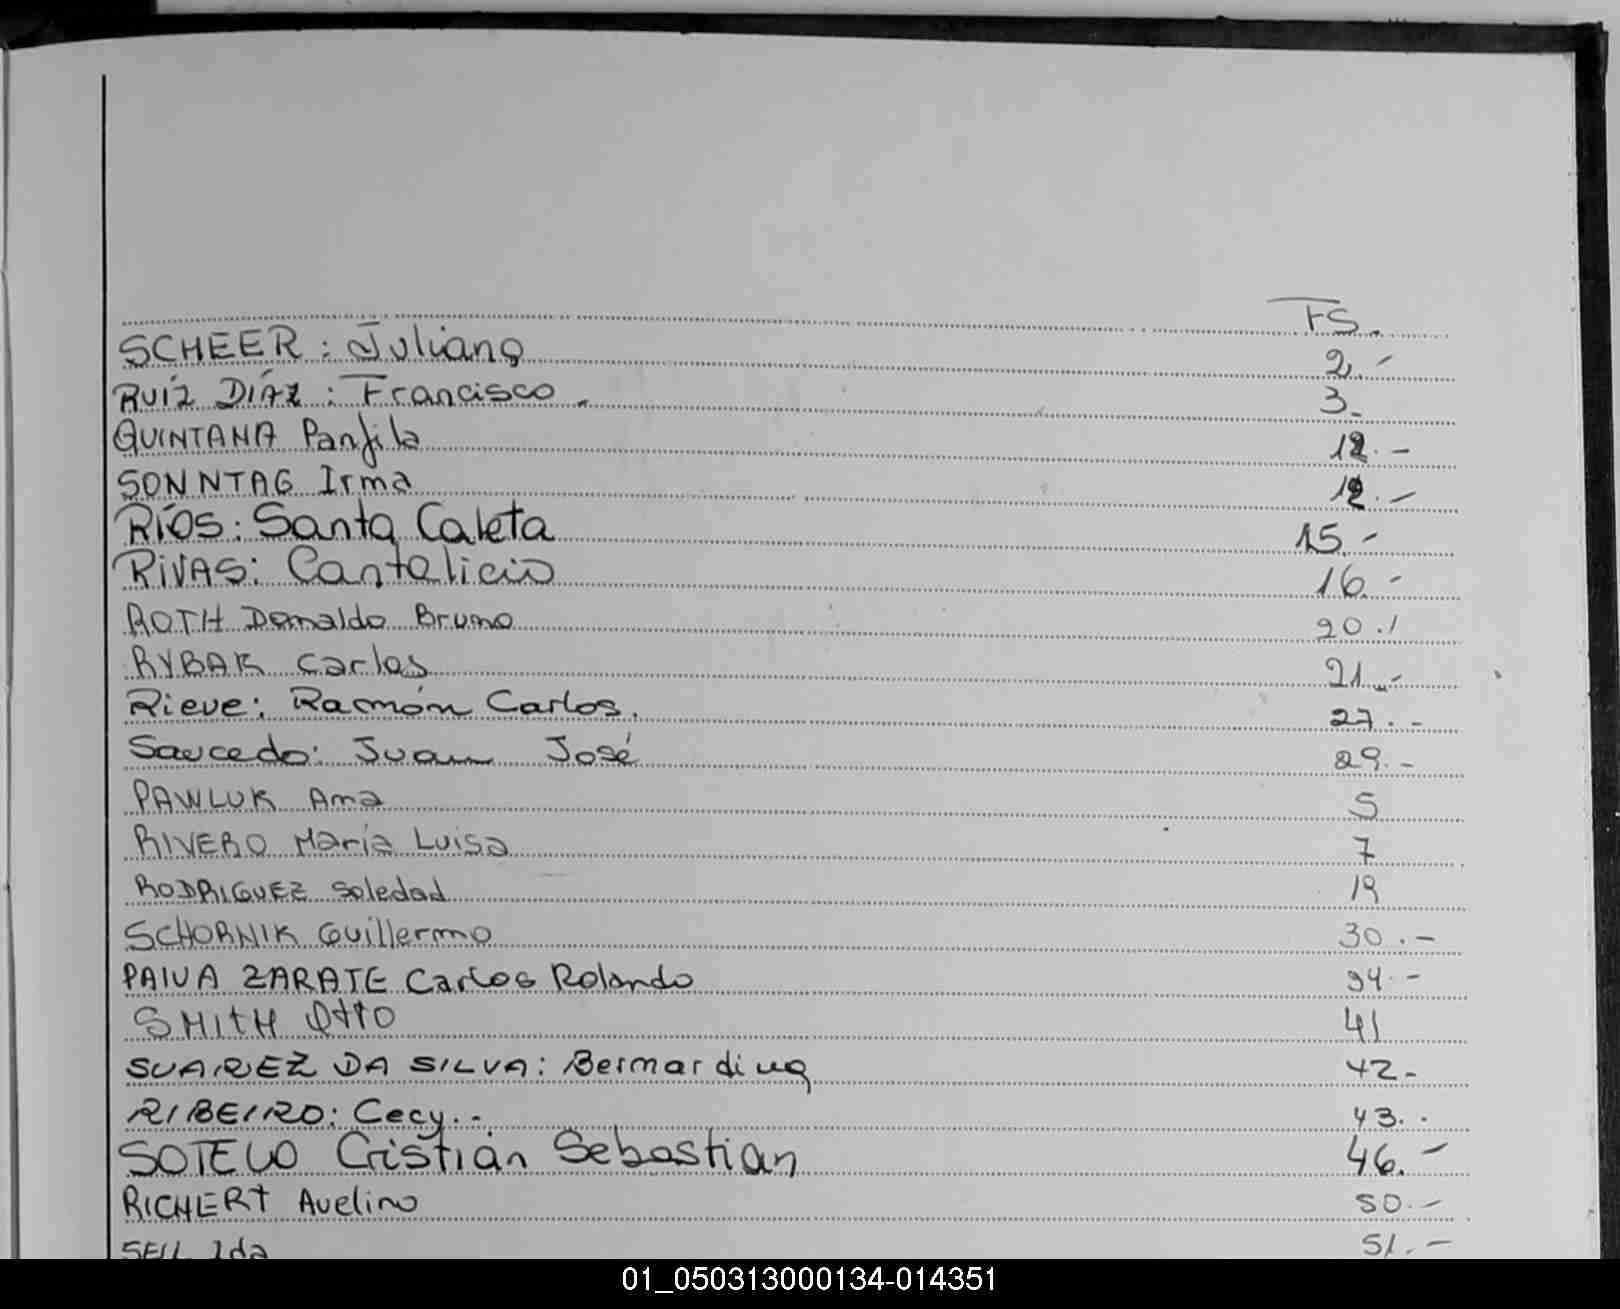 FS.
SCHEER : Juliana 2.-
RUÍZ DÍAZ : Francisco. 3.
QUINTANA Panfila 12.-
SONNTAG Irma 12.-
RÍOS: Santa Caleta 15.-
RIVAS: Cantalicio 16.-
ROTH Donaldo Bruno 20.-
RYBAK Carlos 21.-
Rieve: Ramón Carlos. 27.-
Saucedo: Juan José 29.-
PAWLUK Ana 5
RIVERO María Luisa 7
RODRIGUEZ Soledad 19
SCHORNIK Guillermo 30.-
PAIVA ZARATE Carlos Rolando 34.-
SMITH Otto 41
SUAREZ DA SILVA: Bernardina 42.-
RIBEIRO: Cecy.- 43.-
SOTELO Cristián Sebastian 46.-
RICHERT Avelino 50.-
SELL Ida 51.-
01_050313000134-014351